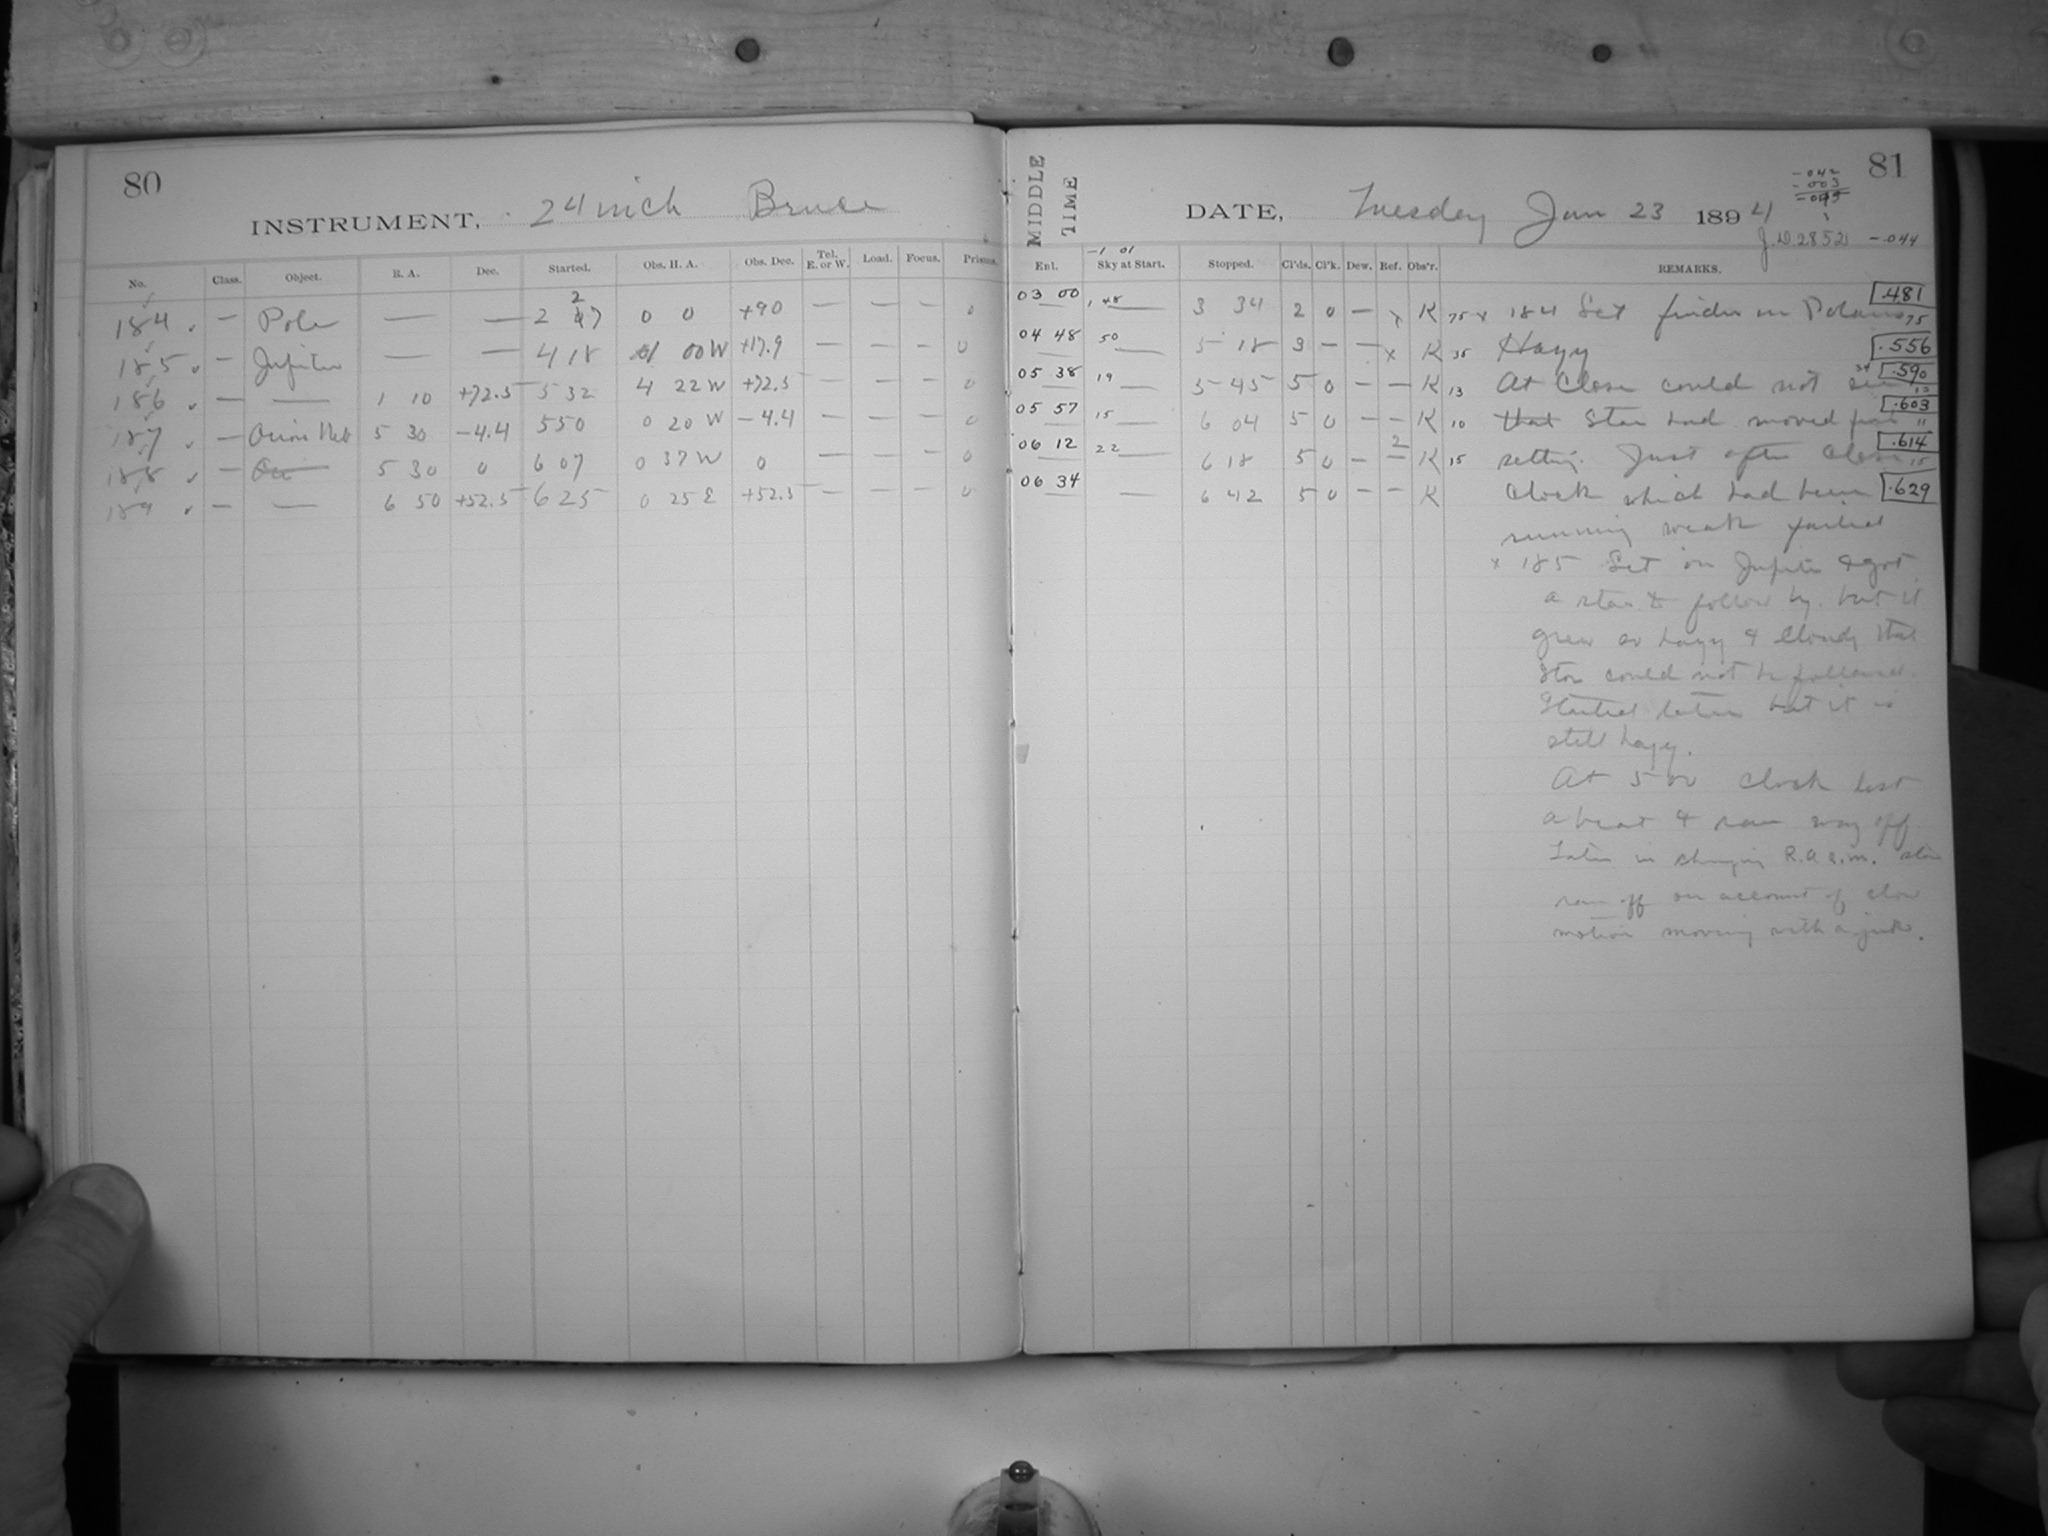 80
INSTRUMENT, 24 inch Bruce
No. Class. Object. R. A. Dec. Started. Obs. H. A. Obs. Dec. Tel. E. or W. Load. Focus. Prisms.
184 — Pole — — 2 27 0 0 +90 — — — 0
185 — Jupiter — — 4 18 1 00 W +17.9 — — — 0
186 — — 1 10 +72.5 5 32 4 22 W +72.5 — — — 0
187 — Orion Neb 5 30 -4.4 5 50 0 20 W -4.4 — — — 0
188 — — 5 30 0 6 07 0 37 W 0 — — — 0
189 — — 6 50 +52.5 6 25 0 25 E +52.5 — — — 0
81
MIDDLE TIME
DATE, Tuesday Jan 23 1894
-042
-003
-045
J.D. 2852 -.044
-1 01
Ent. Sky at Start. Stopped. Cl'ds. Cl'k. Dew. Ref. Obs'r. REMARKS.
03 00 1 48 — 3 34 2 0 — x K 75 x 184 Set finder on Polaris .481 75
04 48 50 — 5 18 3 — — x K 35 Hazy .556
05 38 19 — 5 45 5 0 — — K 13 At Close could not see 34 .590 13
05 57 15 — 6 04 5 0 — — K 10 that Star had moved from .603 11
06 12 22 — 6 18 5 0 — 2 — K 15 setting. Just after Close .614 15
06 34 — 6 42 5 0 — — K clock which had been .629
running weak failed
x 185 Set on Jupiter & got
a star to follow by. but it
grew so hazy & cloudy that
Star could not be followed.
Started later but it is
still hazy.
At 5 00 clock lost
a beat & ran way off
Later in changing R.a.s.m. star
ran off on account of slow
motion moving with a jerk.